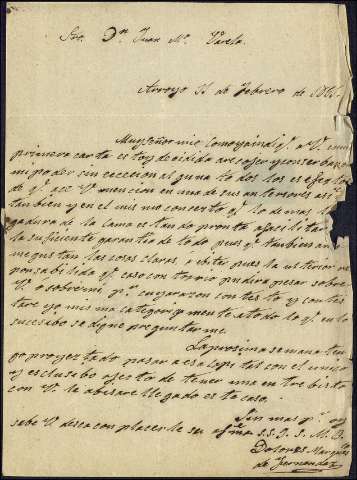 Sr. Dn. Juan Mª. Varela.
Arroyo 11 de Febrero de
Muy señor mio: Como ya indiq.e a V. en mi
primera carta estoy decidida a recojer y conserbar en
mi poder sin eccecion alguna todos los efectos
de q.e ace V mencion en una de sus anteriores asi
tambien y en el mismo concerto q.e lo demas
gadura de la cama estando pronta a facilitar
la suficiente garantia de todo pues q.e tambien a
me gustan las cosas claras, y ebitar pues la ulterior
ponsabilidad q.e caso contrario pudiera pesar sobre
V. o sobre mi p.r cuya razon contesto y contes
tare yo misma categoricamente a todo lo q.e en lo
sucesibo se digne preguntarme.
La procsima semana ten
go proyectado pasar a esa
y esclusibo ojecto de tener una entrebista
con V. la abisare llegado este caso.
Sin mas p.r oy
sabe V desea complacerle su af.ma s.s. q. s. m. B.
Dolores Marques
de Fernandez